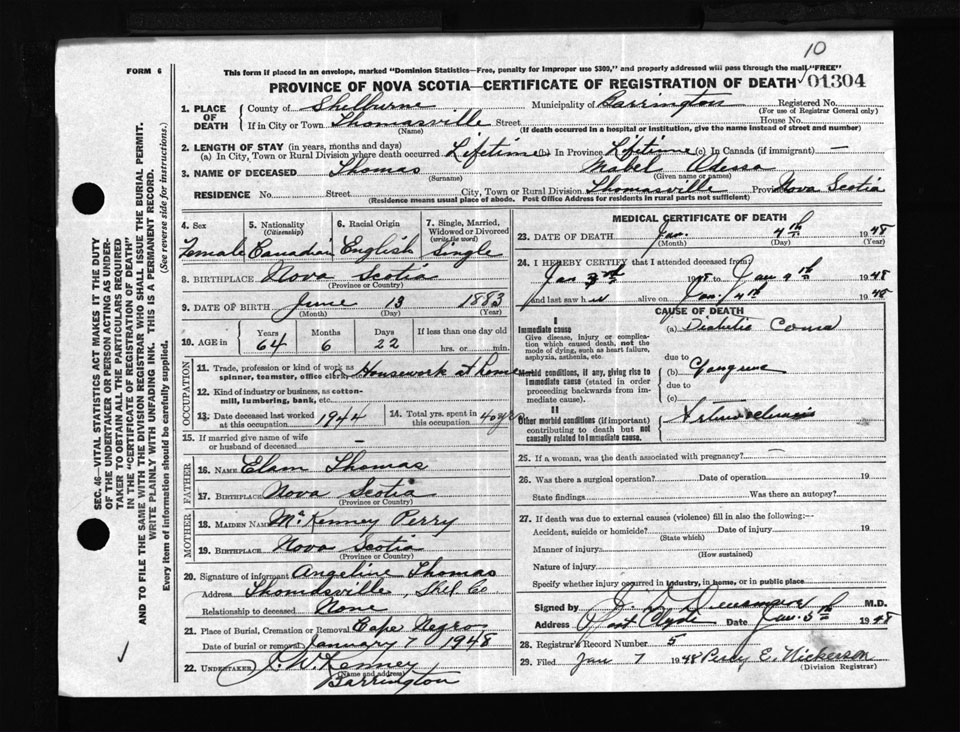 10
FORM 6
This form if placed in an envelope, marked "Dominion Statistics—Free, penalty for improper use $300," and properly addressed will pass through the mail "FREE"
PROVINCE OF NOVA SCOTIA—CERTIFICATE OF REGISTRATION OF DEATH 01304
SEC. 46—VITAL STATISTICS ACT MAKES IT THE DUTY
OF THE UNDERTAKER OR PERSON ACTING AS UNDER-
TAKER TO OBTAIN ALL THE PARTICULARS REQUIRED
IN THE "CERTIFICATE OF REGISTRATION OF DEATH"
AND TO FILE THE SAME WITH THE DIVISION REGISTRAR WHO SHALL ISSUE THE BURIAL PERMIT.
WRITE PLAINLY WITH UNFADING INK. THIS IS A PERMANENT RECORD.
Every item of information should be carefully supplied. (See reverse side for instructions.)
1. PLACE OF DEATH
County of Shelburne Municipality of Barrington Registered No.
(For use of Registrar General only)
If in City or Town Thomasville Street House No.
(Name) (If death occurred in a hospital or institution, give the name instead of street and number)
2. LENGTH OF STAY (in years, months and days)
(a) In City, Town or Rural Division where death occurred Lifetime (b) In Province Lifetime (c) In Canada (if immigrant) —
3. NAME OF DECEASED Thomas Mabel Odessa
(Surname) (Given name or names)
RESIDENCE No. Street City, Town or Rural Division Thomasville Province Nova Scotia
(Residence means usual place of abode. Post Office Address for residents in rural parts not sufficient)
4. Sex 5. Nationality (Citizenship) 6. Racial Origin 7. Single, Married, Widowed or Divorced (write the word)
Female Canadian English Single
8. BIRTHPLACE Nova Scotia
(Province or Country)
9. DATE OF BIRTH June 13 1883
(Month) (Day) (Year)
10. AGE in Years Months Days If less than one day old
64 6 22 hrs. or min.
OCCUPATION
11. Trade, profession or kind of work as spinner, teamster, office clerk, etc. Housework at home
12. Kind of industry or business, as cotton-mill, lumbering, bank, etc.
13. Date deceased last worked at this occupation 1944 14. Total yrs. spent in this occupation 40 yrs
15. If married give name of wife or husband of deceased —
FATHER
16. NAME Elam Thomas
17. BIRTHPLACE Nova Scotia
(Province or Country)
MOTHER
18. MAIDEN NAME McKenney Perry
19. BIRTHPLACE Nova Scotia
(Province or Country)
20. Signature of informant Angeline Thomas
Address Thomasville, Shel. Co
Relationship to deceased None
21. Place of Burial, Cremation or Removal Cape Negro
Date of burial or removal January 7 1948
22. UNDERTAKER J. W. Kenney
(Name and address)
Barrington
MEDICAL CERTIFICATE OF DEATH
23. DATE OF DEATH Jan. 4th 1948
(Month) (Day)
24. I HEREBY CERTIFY that I attended deceased from
Jan 3rd 1948 to Jan 4th 1948
and last saw her alive on Jan. 4th 1948
CAUSE OF DEATH
I
Immediate cause
Give disease, injury or complication which caused death, not the mode of dying, such as heart failure, asphyxia, asthenia, etc.
(a) Diabetic Coma
due to
Morbid conditions, if any, giving rise to immediate cause (stated in order proceeding backwards from immediate cause).
(b) Gangrene
due to
(c)
II
Other morbid conditions (if important) contributing to death but not causally related to immediate cause.
25. If a woman, was the death associated with pregnancy? —
26. Was there a surgical operation? Date of operation 19
State findings Was there an autopsy?
27. If death was due to external causes (violence) fill in also the following:—
Accident, suicide or homicide? Date of injury 19
(State which)
Manner of injury
(How sustained)
Nature of injury
Specify whether injury occurred in industry, in home, or in public place
Signed by M.D.
Address Port Clyde Date Jan. 5th 1948
28. Registrar's Record Number 5
29. Filed Jan 7 1948 Percy E. Nickerson
(Division Registrar)